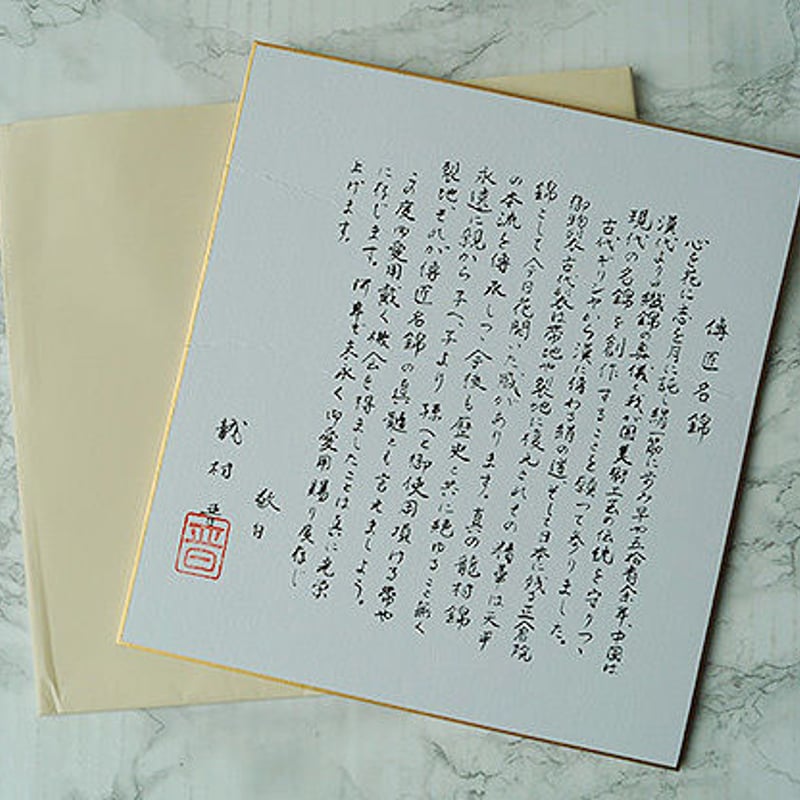 傳匠名錦
心を花に志を月に託し絹一筋に歩み早や五拾有余年、中国は
漢代よりの織錦の真儀と我が国美術工芸の伝統を守りつゝ
現代の名錦を創作することを願って参りました。
古代ギリシヤから漢に伝わる絹の道そして日本に残る正倉院
御物裂、古代裂は帯地や裂地に復元されその儘 は天平
錦として今日花開いた感があります。真の龍村錦
の本流を傳承しつゝ今後も歴史と共に絶ゆること無く
永遠に親から子へ、子より孫へと御使用頂ける帯や
裂地、それが傳匠名錦の真髄とも言えましょう。
この度御愛用戴く機会を得ましたことは真に光栄
に存じます。何卒も末永く御愛用賜り度存じ
上げます。
敬白
龍村晋
晋